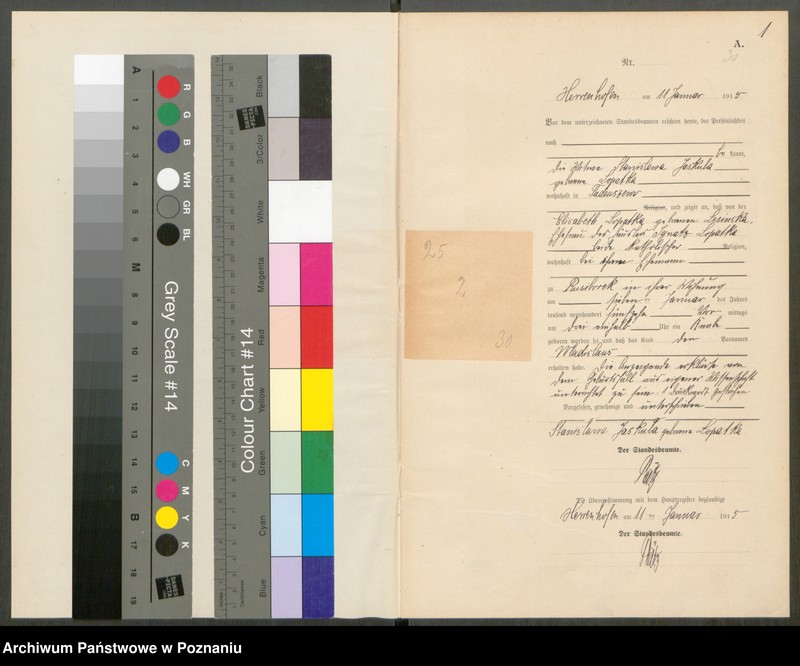 A
1
2
3
4
5
6
M
8
9
10
11
12
13
14
15
B
17
18
19
R
G
B
WH
GR
BL
Grey Scale #14
C
M
Y
K
DANES
PICTA
Colour Chart #14
Black
3/Color
White
Magenta
Red
Yellow
Green
Cyan
Blue
Centimetres
DANES
PICTA
25
2
30
1
A.
30
Nr.
Herrenhofen am 11 Januar 1915
Vor dem unterzeichneten Standesbeamten erschien heute, der Persönlichkeit
nach
be kannt,
die Witwe Stanislawa Jaskula
geborene Lopatka
wohnhaft in
Religion, und zeigte an, daß von der
Elisabeth Lopatka geborenen
Ehefrau des Häusler Ignatz Lopatka
beide katholischer Religion,
wohnhaft bei ihrem Ehemann
zu Russborek in ihrer Wohnung
am sieben ten Januar des Jahres
tausend neunhundert fünfzehn Vor mittags
um drei einhalb Uhr ein Knabe
geboren worden sei und daß das Kind den Vornamen
Wladislaus
erhalten habe. Die Anzeigende erklärte von
dem Geburtsfall aus eigener Wissenschaft
unterrichtet zu sein. 1 Druckwort gestrichen
Vorgelesen, genehmigt und unterschrieben
Stanislawa Jaskula geborene Lopatka
Der Standesbeamte.
Die Übereinstimmung mit dem Hauptregister beglaubigt
Herrenhofen am 11 ten Januar 1915
Der Standesbeamte.
Archiwum Państwowe w Poznaniu